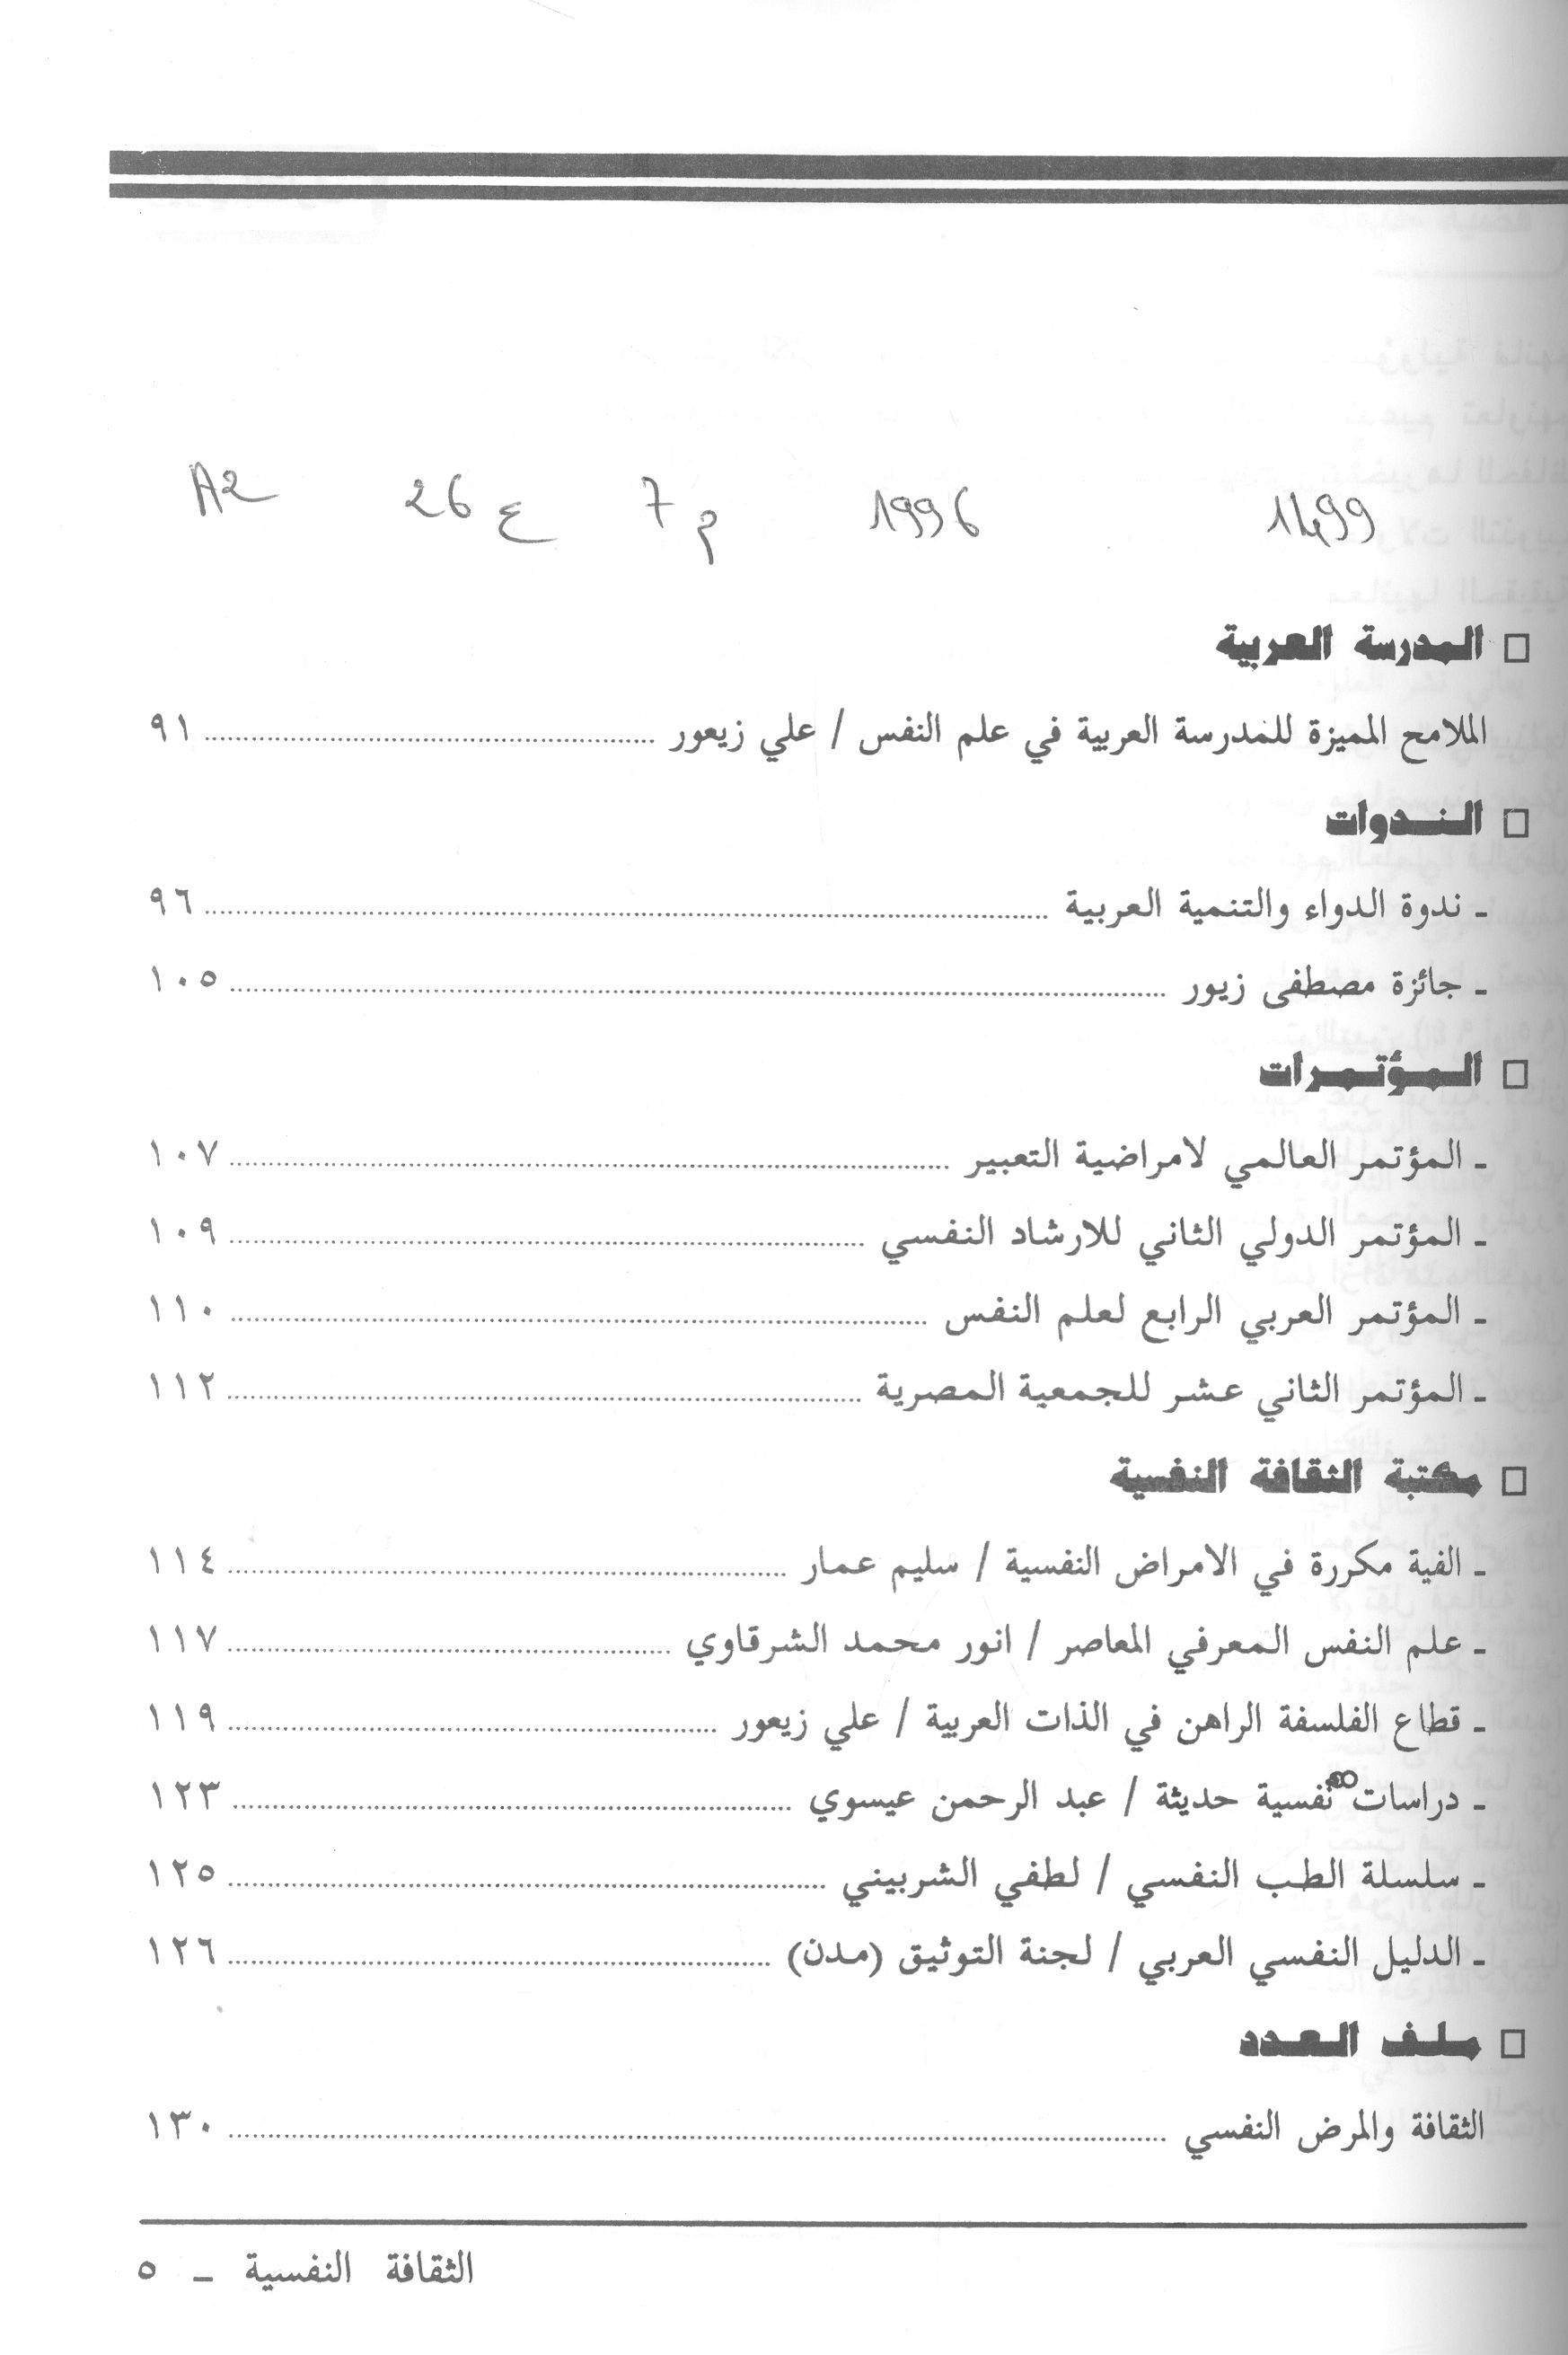 A2 26 ع 7 م 1996 1499
□ المدرسة العربية
الملامح المميزة للمدرسة العربية في علم النفس / علي زيعور ........ ٩١
□ الندوات
ـ ندوة الدواء والتنمية العربية ........ ٩٦
ـ جائزة مصطفى زيور ........ ١٠٥
□ المؤتمرات
ـ المؤتمر العالمي لامراضية التعبير ........ ١٠٧
ـ المؤتمر الدولي الثاني للارشاد النفسي ........ ١٠٩
ـ المؤتمر العربي الرابع لعلم النفس ........ ١١٠
ـ المؤتمر الثاني عشر للجمعية المصرية ........ ١١٢
□ مكتبة الثقافة النفسية
ـ الفية مكررة في الامراض النفسية / سليم عمار ........ ١١٤
ـ علم النفس المعرفي المعاصر / انور محمد الشرقاوي ........ ١١٧
ـ قطاع الفلسفة الراهن في الذات العربية / علي زيعور ........ ١١٩
ـ دراسات نفسية حديثة / عبد الرحمن عيسوي ........ ١٢٣
ـ سلسلة الطب النفسي / لطفي الشربيني ........ ١٢٥
ـ الدليل النفسي العربي / لجنة التوثيق (مدن) ........ ١٢٦
□ ملف العدد
الثقافة والمرض النفسي ........ ١٣٠
الثقافة النفسية ـ ٥